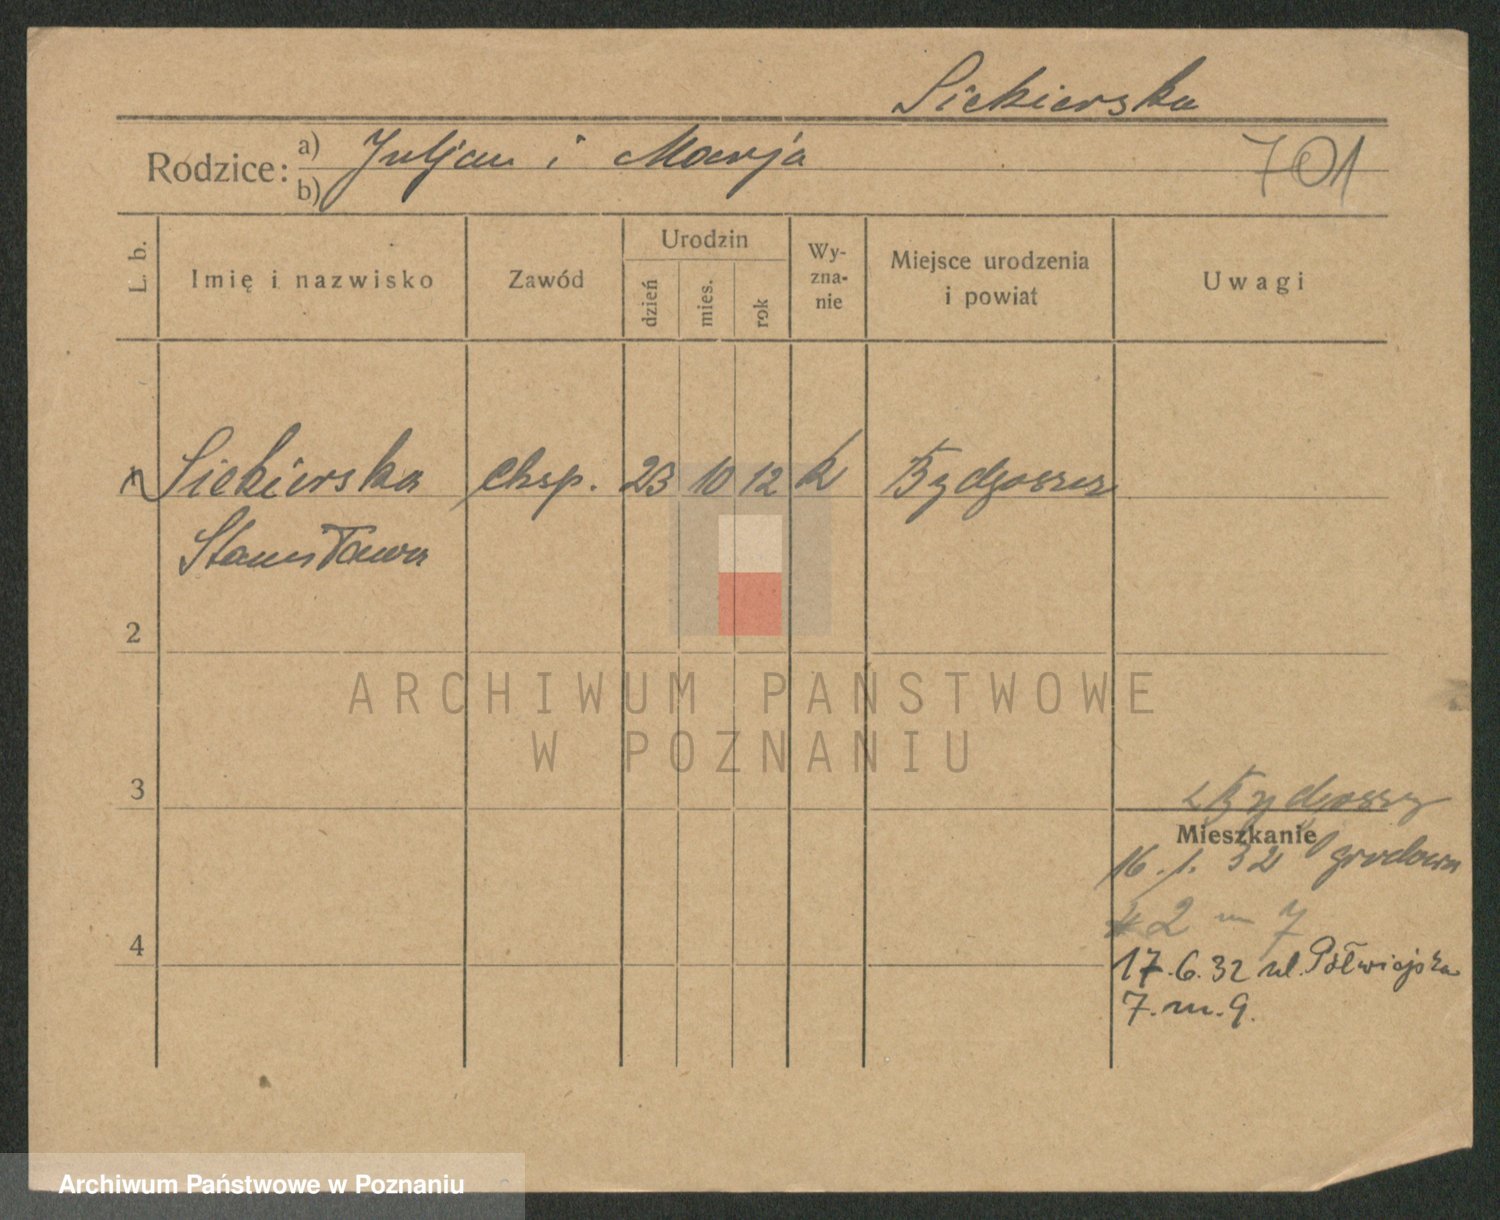 Siekierska
Rodzice: a) Juljan i Marja
b)
701
L. b.
Imię i nazwisko
Zawód
Urodzin
dzień
mies.
rok
Wy-
zna-
nie
Miejsce urodzenia
i powiat
Uwagi
Siekierska
Stanisława
eksp.
23 10 12 k Bydgoszcz
2
3
4
z Bydgoszcz
Mieszkanie
16. 1. 32 grodowa
2 m 7
17.6.32 ul. Półwiejska
7. m. 9.
ARCHIWUM PAŃSTWOWE
W POZNANIU
Archiwum Państwowe w Poznaniu